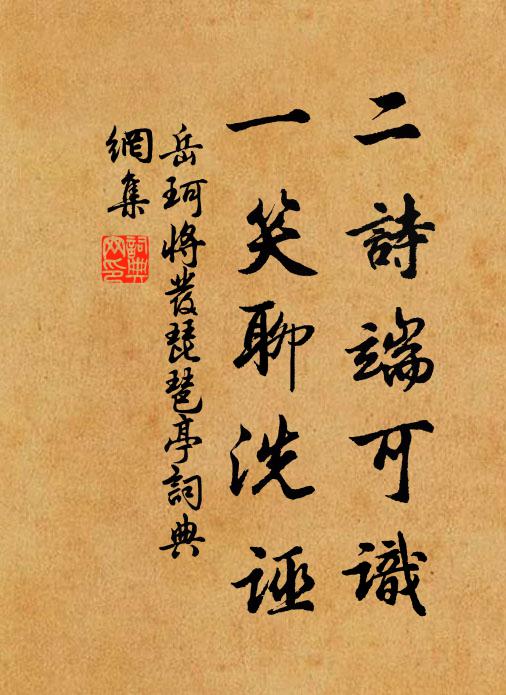 二詩端可識
一笑聊洗誣
岳珂將發琵琶亭詞典
網集
詞典
网印